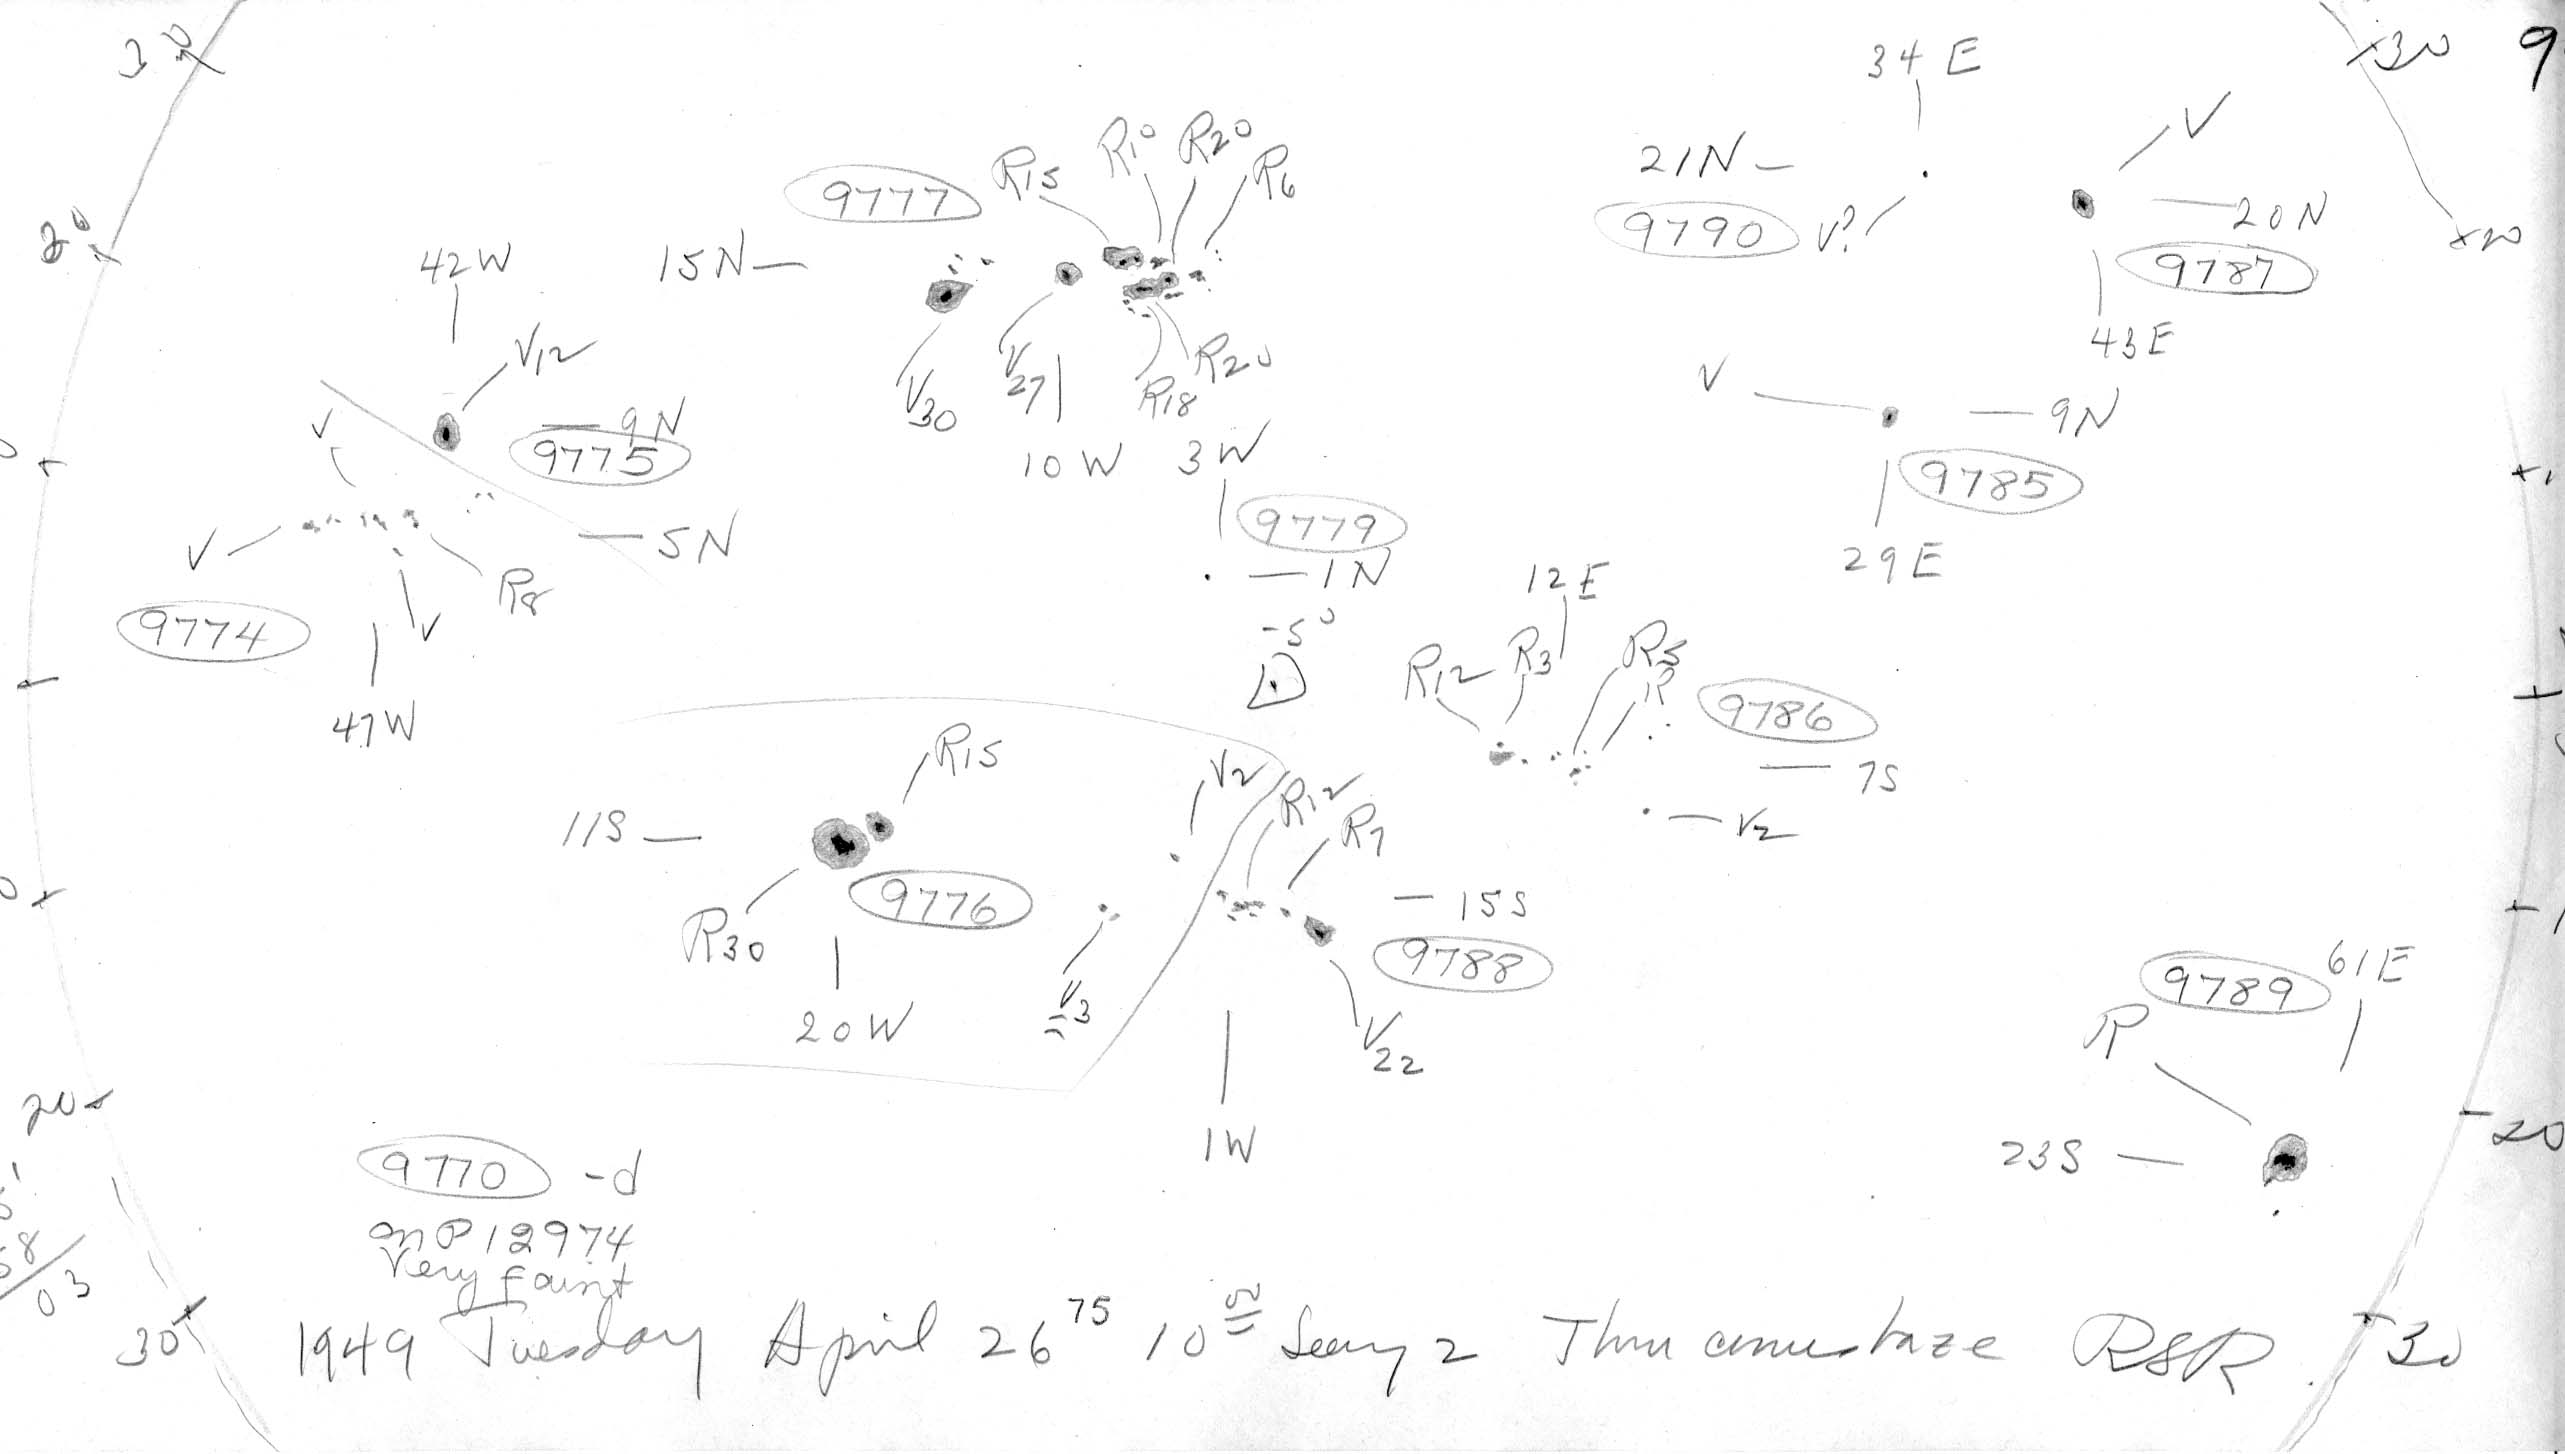 30
30
9
34 E
V
R10
R20
R15
R6
21N
9777
20N
9790
V?
20
x20
42W
15N
9787
43E
V12
V
V
27
R20
9N
V
V30
R18
9N
9775
10W
3W
9785
9779
5N
V
29E
1N
12E
R8
-5°
9774
V
R3
R5
R12
R
9786
47W
R15
7S
V2
11S
R12
V2
R7
9776
15S
R30
9788
9789
61E
V3
R
20W
V22
20
1W
20
23S
9770 -d
on P 12974
Very faint
03
30
1949 Tuesday April 26 75 10 50 Seeing 2 Thru cirrus haze RSR
30